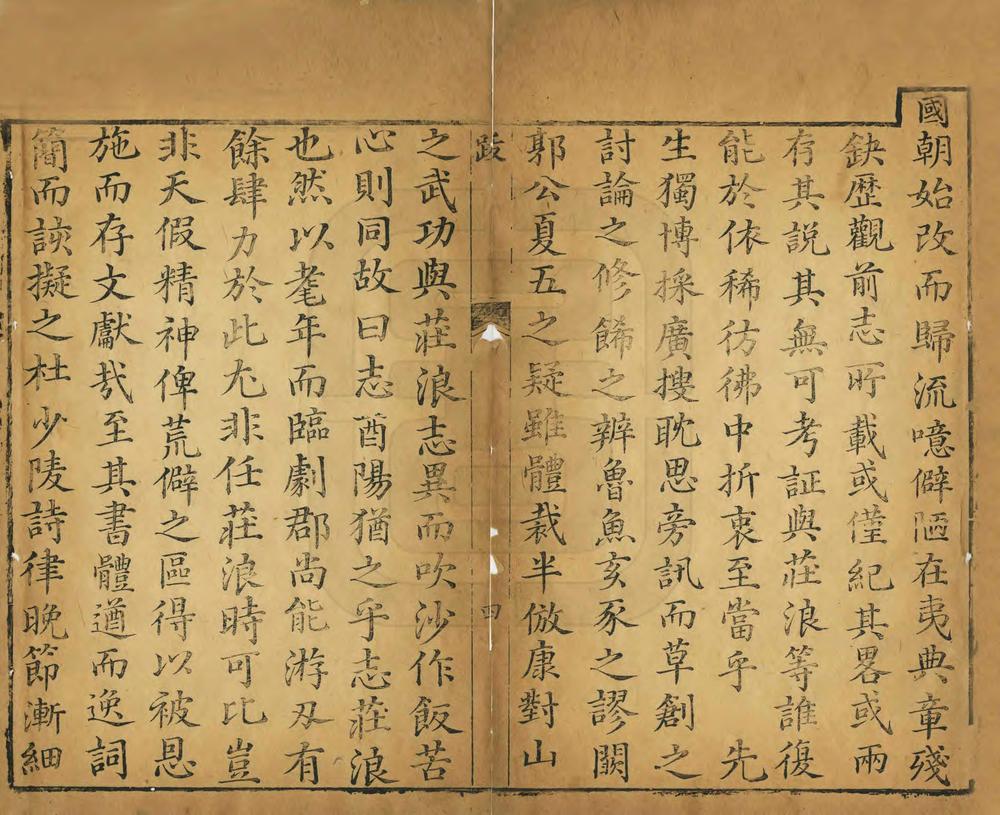 國朝始改而歸流噫僻陋在夷典章殘
缺歷觀前志所載或僅紀其畧或兩
存其說其無可考証與莊浪等誰復
能於依稀彷彿中折衷至當乎 先
生獨博採廣搜耽思旁訊而草創之
討論之修飾之辨魯魚亥豕之謬闕
郭公夏五之疑雖體裁半倣康對山
跋 四
之武功與莊浪志異而吹沙作飯苦
心則同故曰志酉陽猶之乎志莊浪
也然以耄年而臨劇郡尚能游刃有
餘肆力於此尤非任莊浪時可比豈
非天假精神俾荒僻之區得以被恩
施而存文獻哉至其書體遒而逸詞
簡而該擬之杜少陵詩律晚節漸細